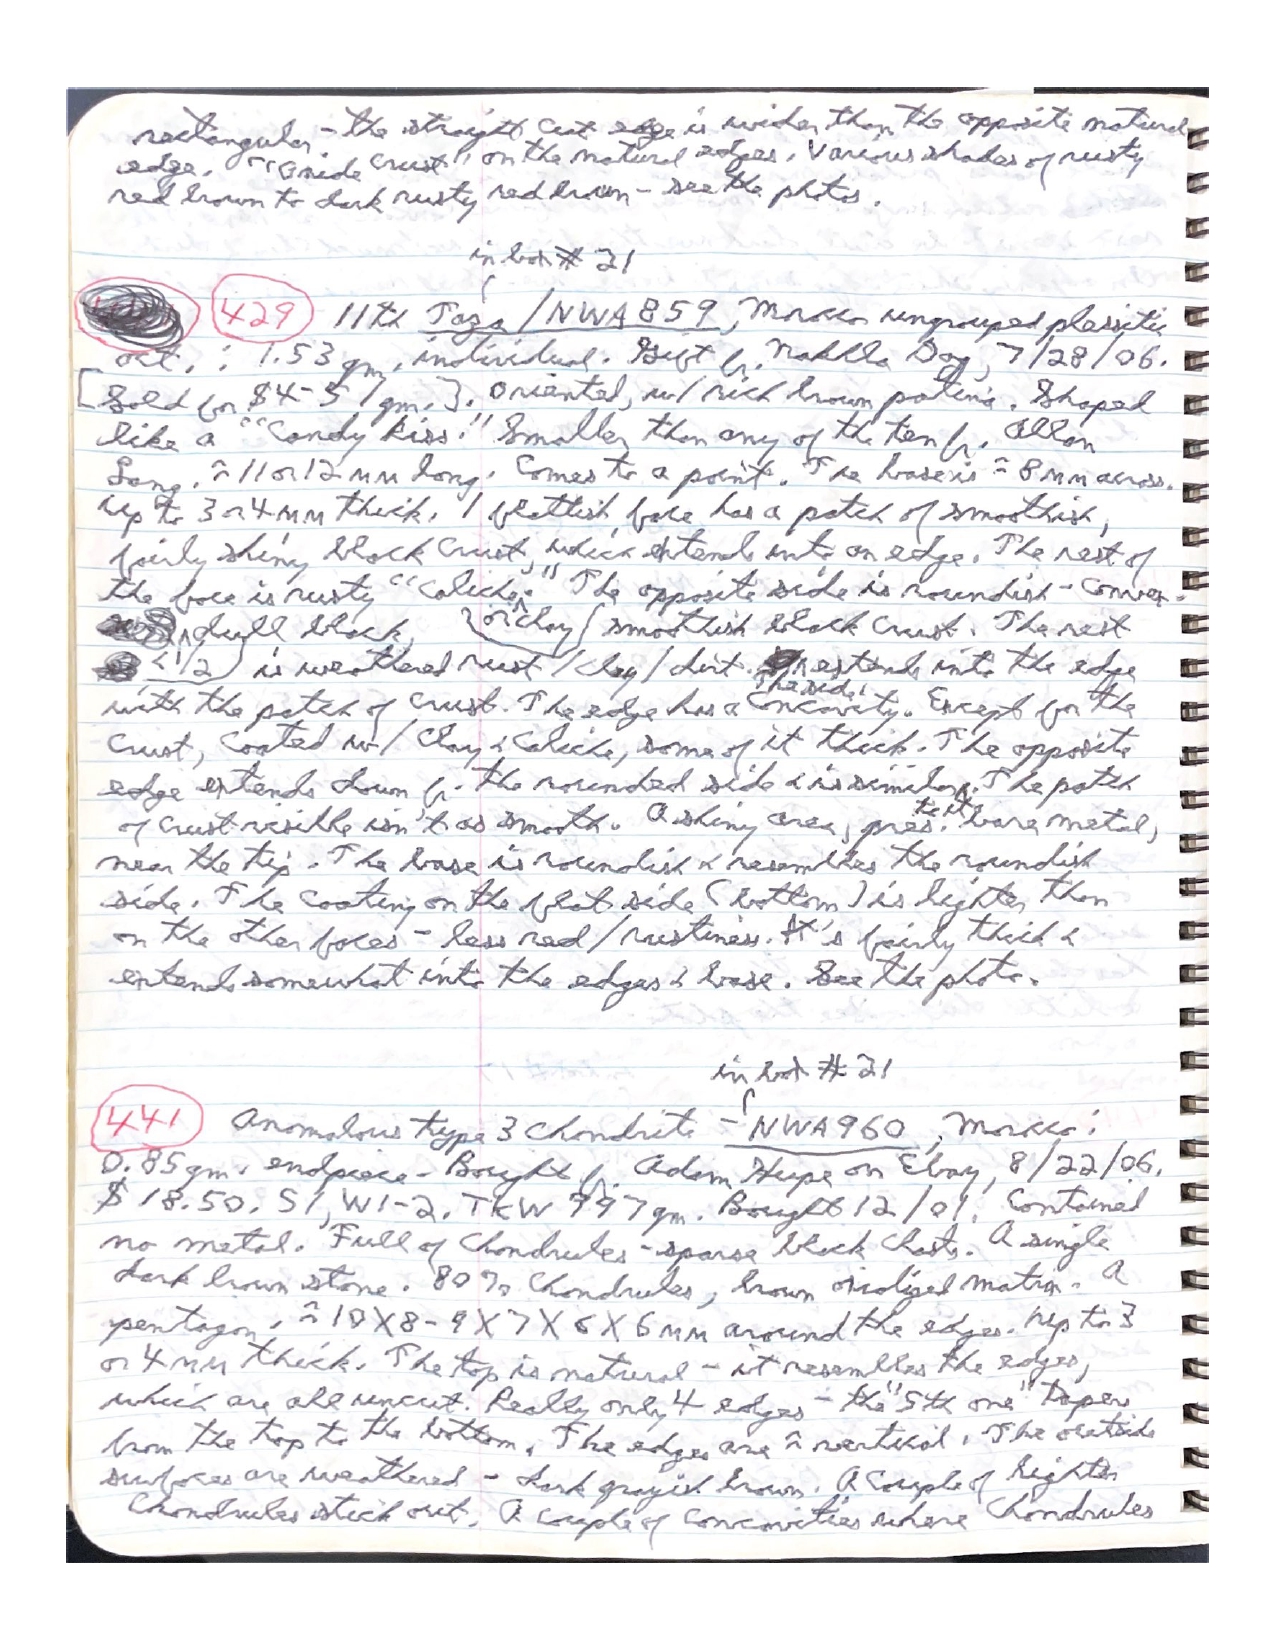 rectangular - the straight cut edge is wider than the opposite natural
edge. "Oxide crust" on the natural edges. Various shades of rusty
red brown to dark rusty red brown - see the photos.
in box # 21
429 11th Taza / NWA 859, Morocco ungrouped plessitic
oct. : 1.53 gm. individual. Gift fr. Nakhla Dog, 7/28/06.
[Sold for $4-5/gm.]. Oriented, w/ rich brown patina. Shaped
like a "Candy Kiss." Smaller than any of the ten fr. Allan
Lang. ≈ 11 or 12 mm long. Comes to a point. The base is ≈ 8 mm across.
Up to 3 or 4 mm thick. 1 flattish face has a patch of smoothish,
fairly shiny black crust, which extends into an edge. The rest of
the face is rusty "caliche." The opposite side is roundish - convex.
dull black, or clay smoothish black crust. The rest
(<1/2) is weathered rust / clay / dirt. extends into the edge
The side!
with the patch of crust. The edge has a concavity. Except for the
crust, coated w/ clay & caliche, some of it thick. The opposite
edge extends down fr. the rounded side & is similar. The patch
of crust visible isn't as smooth. A shiny area, pres. bare metal,
near the tip. The base is roundish & resembles the roundish
side. The coating on the flat side (bottom) is lighter than
on the other faces - less red / rustiness. It's fairly thick &
extends somewhat into the edges & base. See the photo.
in box # 21
441 Anomalous type 3 chondrite - NWA 960, Morocco:
0.85 gm. endpiece - Bought fr. Adam Hupe on Ebay, 8/22/06.
$18.50. S1, W1-2. TKW 997 gm. Bought 12/01. Contained
no metal. Full of chondrules - sparse black clasts. A single
dark brown stone. 80% chondrules, brown oxidized matrix. A
pentagon, ≈ 10 X 8-9 X 7 X 6 X 6 mm around the edges. Up to 3
or 4 mm thick. The top is natural - it resembles the edges,
which are all uncut. Really only 4 edges - the "5th one" tapers
from the top to the bottom. The edges are ≈ vertical. The outside
surfaces are weathered - dark grayish brown. A couple of lighter
chondrules stick out. A couple of concavities where chondrules